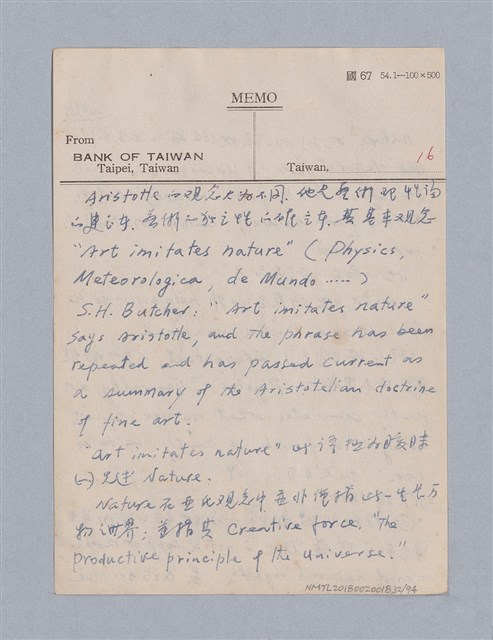 國 67 54.1—100×500
MEMO
From
BANK OF TAIWAN
Taipei, Taiwan
Taiwan,
16
Aristotle 的观念大为不同.
的建立者. 艺術 的确立者. 其基本观念
"Art imitates nature" (Physics,
Meteorologica, de Mundo ..... )
S.H. Butcher: "Art imitates nature"
says Aristotle, and the phrase has been
repeated and has passed current as
a summary of the Aristotelian doctrine
of fine art.
"Art imitates nature" 曖昧
(一) Nature.
Nature 在亚氏观念中並非僅指此一生长万
物之世界; 並指其 Creative force, "the
productive principle of the Universe."
NMTL2018002001832/94